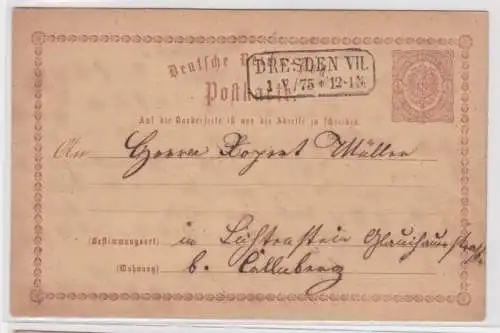 Deutsche
DRESDEN VII.
1 V /75 * 12-1N
Postkarte
Auf die Vorderseite ist nur die Adresse zu schreiben.
An Herrn Robert Müller
(Bestimmungsort) in Lichtenstein Glauchauerstraße
(Wohnung) b. Callnberg